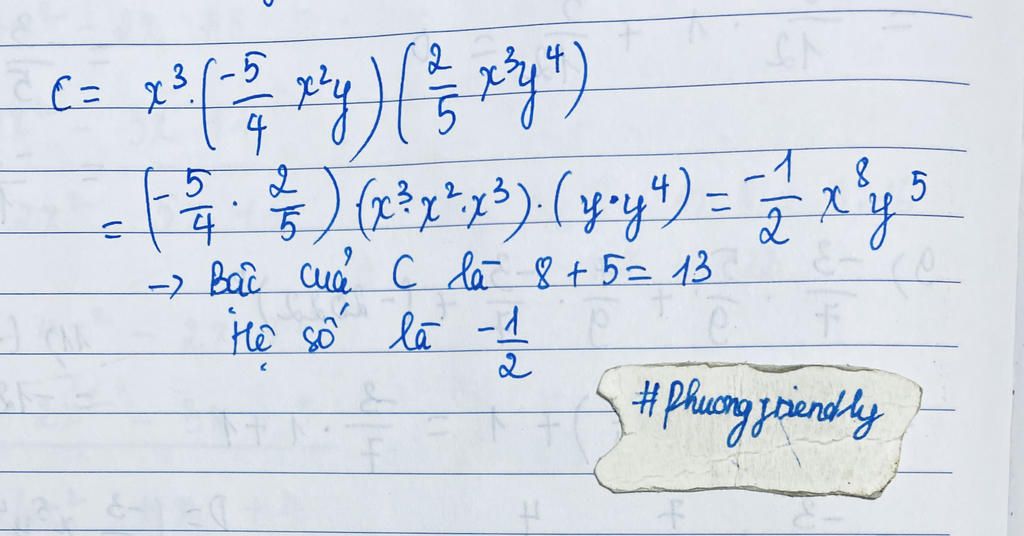 C = x³.(-5/4 x²y)(2/5 x³y⁴)
= (-5/4 . 2/5).(x³.x².x³).(y.y⁴) = -1/2 x⁸y⁵
→ Bậc của C là 8 + 5 = 13
Hệ số là -1/2
#Phuongfriendly